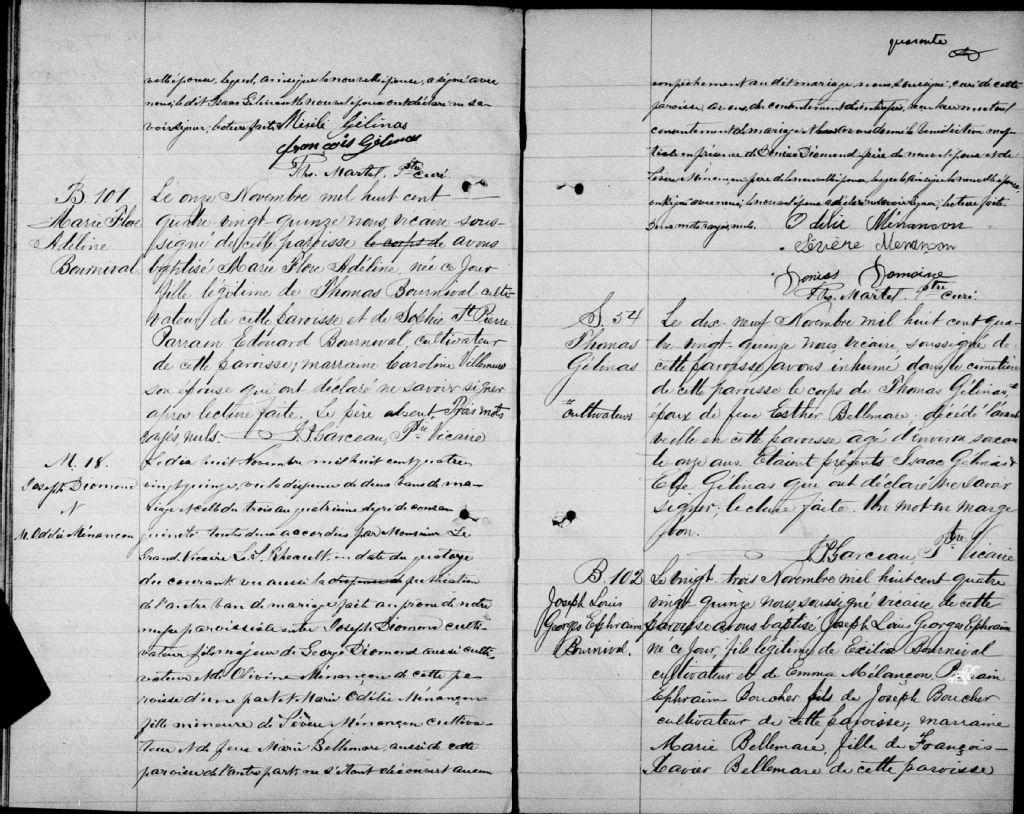 nouvelle épouse, a signé avec
nous, le dit Isaac Gélinas & le nouvel époux ont déclaré ne sa-
voir signer, lecture faite. Mésilé Gélinas
François Gélinas
Ths. Martel, Ptre Curé.
B. 101
Marie Flore
Adéline
Bournival
Le onze Novembre mil huit cent
quatre vingt-quinze nous, vicaire sous-
signé de cette paroisse le corps de avons
baptisés Marie Flore Adéline, née ce jour
fille légitime de Thomas Bournival culti-
vateur de cette paroisse et de Sophie St Pierre
Parrain Edouard Bournival, cultivateur
de cette paroisse; marraine Caroline Villemure
son épouse qui ont déclaré ne savoir signer
après lecture faite. Le père absent Trois mots
rayés nuls. J Garceau, Ptre Vicaire
M. 18.
Joseph Diamond
&
M. Odélie Ménançon
Le dix huit Novembre mil huit cent quatre
vingt quinze, vu la dispense de deux bans de ma-
riage & celle du trois au quatrième degré de consan
guinité toutes deux accordées par Monsieur Le
Grand Vicaire L. S. Rheault en date du quatorze
du courant, vu aussi la dispense de publication
de l'autre ban de mariage fait au prône de notre
messe paroissiale entre Joseph Diamond culti-
vateur, fils majeur de George Diamond aussi culti-
vateur & de Olivine Ménançon de cette pa
roisse d'une part & Marie Odélie Ménançon
fille mineure de Sévère Ménançon cultiva-
teur & de feue Marie Bellemare, aussi de cette
paroisse de l'autre part, ne s'étant découvert aucun
quarante
empêchement au dit mariage, nous, soussigné, curé de cette
paroisse, avons, du consentement des
consentement de mariage & leur avons donné la bénédiction nup-
tiale en présence de Boniss Diamond père du nouvel époux et de
Sévère Ménançon père de la nouvelle épouse, lequel ainsi que la nouvelle épouse,
ont signé avec nous; le nouvel époux a déclaré ne savoir signer, lecture faite
mots rayés nuls. Odélie Ménancon
Sévère Menançon
Doniss Domaine
Ths. Martel, Ptre Curé.
S. 54
Thomas
Gélinas
"
cultivateurs
Le dix-neuf Novembre mil huit cent qua-
tre vingt-quinze nous, vicaire, soussigné de
cette paroisse, avons inhumé dans le cimetière
de cette paroisse le corps de Thomas Gélinas,"
époux de feue Esther Bellemare, décédé l'avant
veille en cette paroisse âgé d'environ soixan
te onze ans. Etaient présents Isaac Gélinas &
Elie Gélinas qui ont déclaré ne savoir
signer, lecture faite. Un mot en marge
bon.
J Garceau, Ptre Vicaire
B. 102
Joseph Louis
Georges Ephraim
Bournival.
Le vingt-trois Novembre mil huit cent quatre
vingt-quinze nous, soussigné vicaire de cette
paroisse avons baptisé Joseph Louis Georges Ephraim
né ce jour, fils légitime de Exilia Bournival
cultivateur et de Emma Mélançon, Parrain
Ephraim Boucher fils de Joseph Boucher
cultivateur de cette paroisse; marraine
Marie Bellemare, fille de François-
Xavier Bellemare de cette paroisse